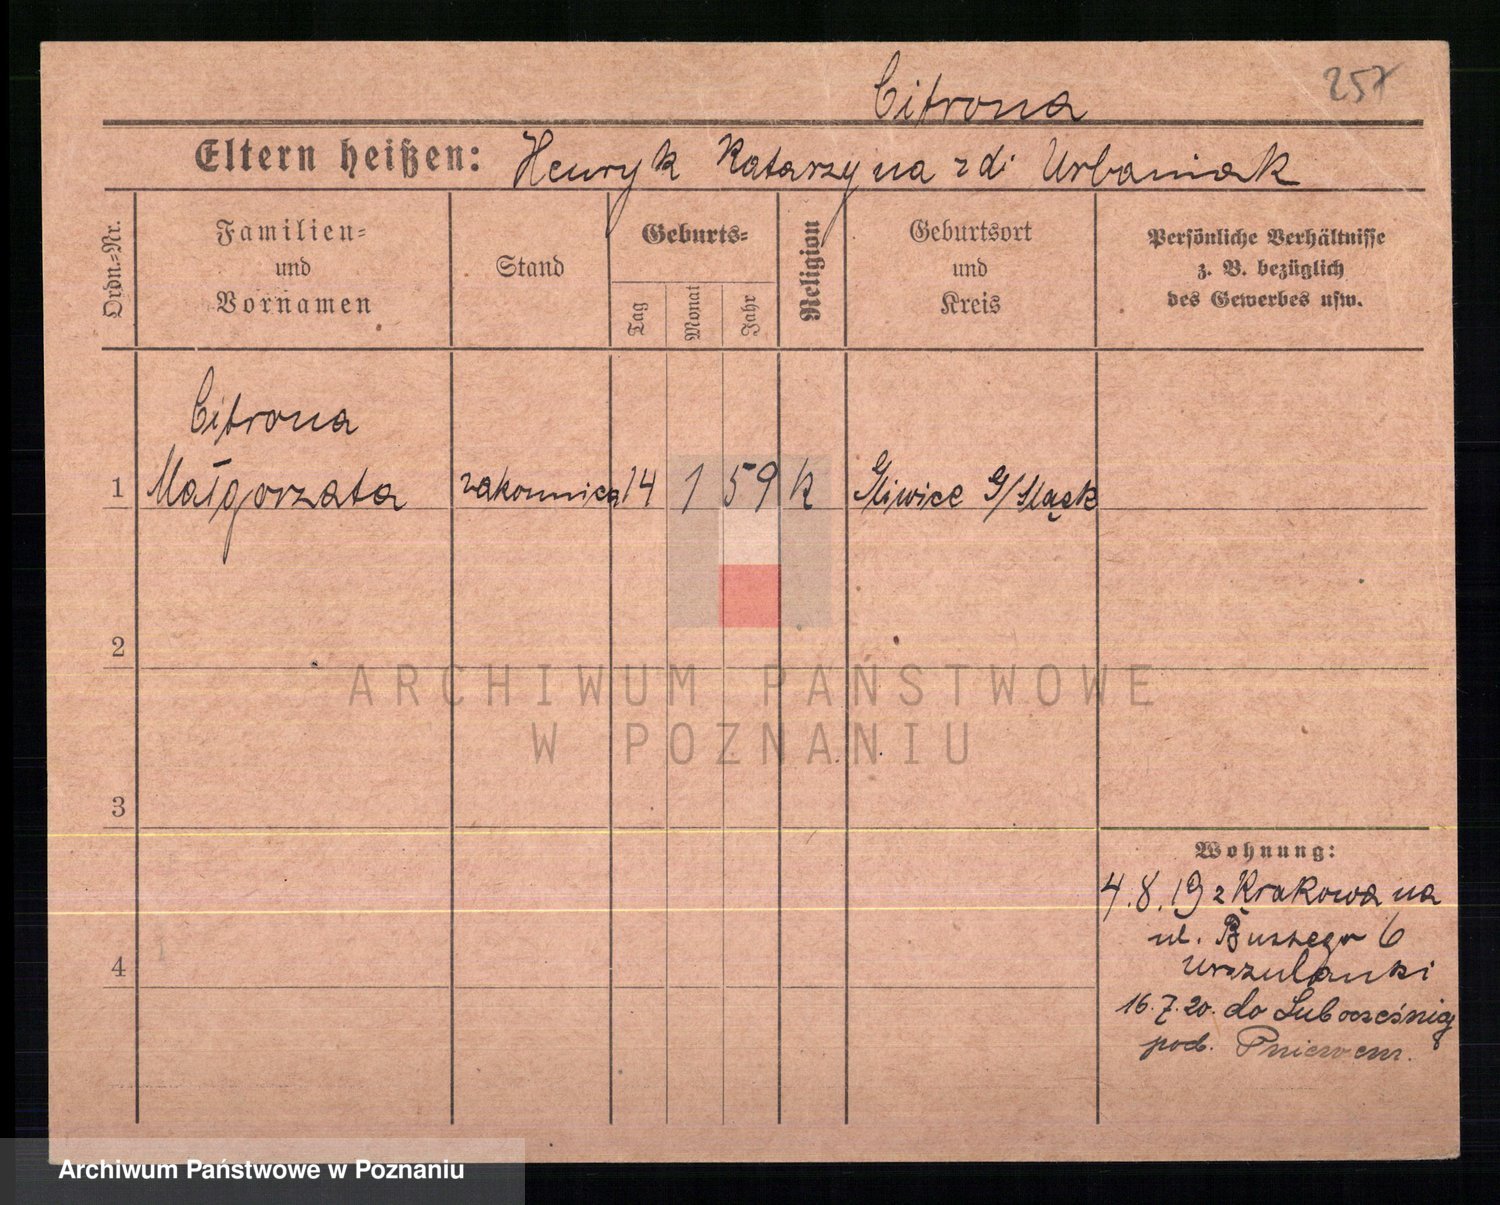 257
Citrona
Eltern heißen: Henryk Katarzyna z d. Urbaniak
Ordn.-Nr.
Familien-
und
Vornamen
Stand
Geburts-
Tag
Monat
Jahr
Religion
Geburtsort
und
Kreis
Persönliche Verhältnisse
z. B. bezüglich
des Gewerbes usw.
Citrona
1 Małgorzata zakonnica 14 1 59 k Gliwice G/Śląsk
2
ARCHIWUM PAŃSTWOWE
W POZNANIU
3
Wohnung:
4.8.19 z Krakowa na
ul. 6
urszulanki
4
16.7.20. do
pod. Pniewem.
Archiwum Państwowe w Poznaniu